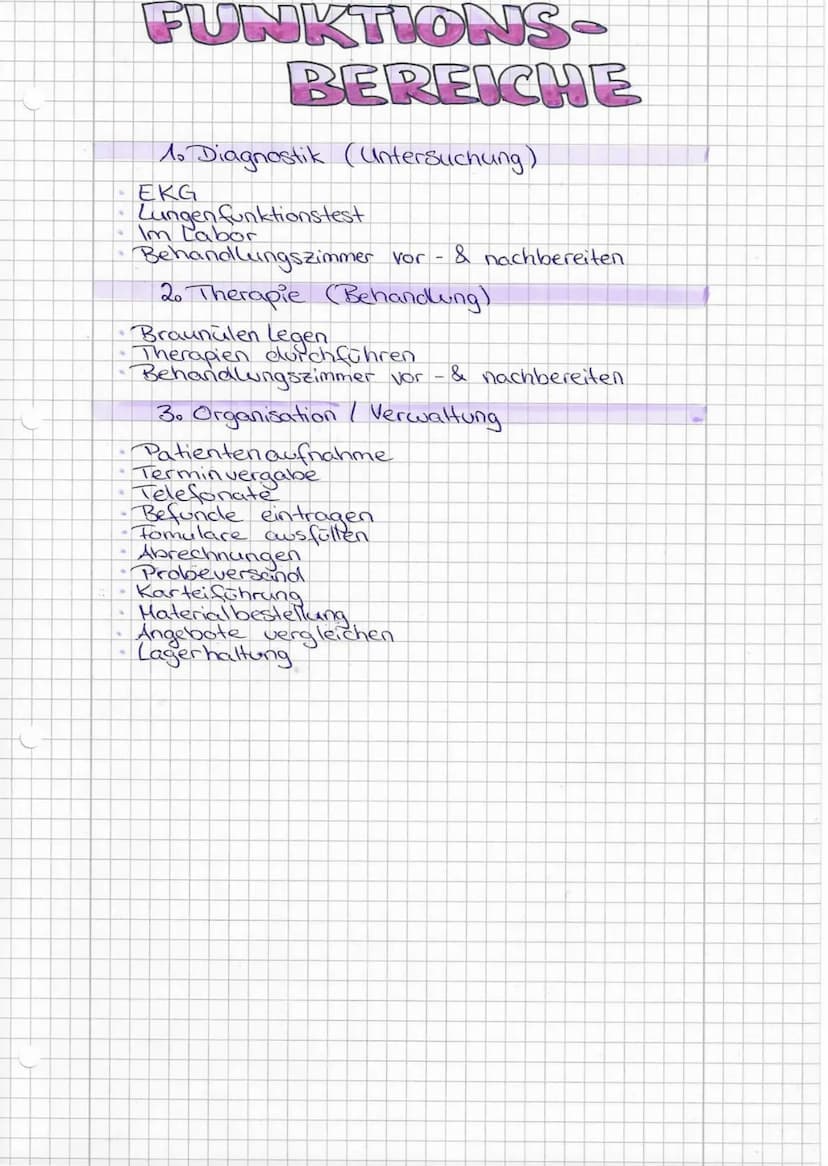 FUNKTIONS-
BEREICHE
1. Diagnostik (Untersuchung)
· EKG
· Lungenfunktionstest
· Im Labor
· Behandlungszimmer vor - & nachbereiten
2. Therapie (Behandlung)
· Braunülen legen
· Therapien durchführen
· Behandlungszimmer vor - & nachbereiten
3. Organisation / Verwaltung
· Patientenaufnahme
· Terminvergabe
· Telefonate
· Befunde eintragen
· Fomulare ausfüllen
· Abrechnungen
· Probeversand
· Karteiführung
· Materialbestellung
· Angebote vergleichen
· Lagerhaltung